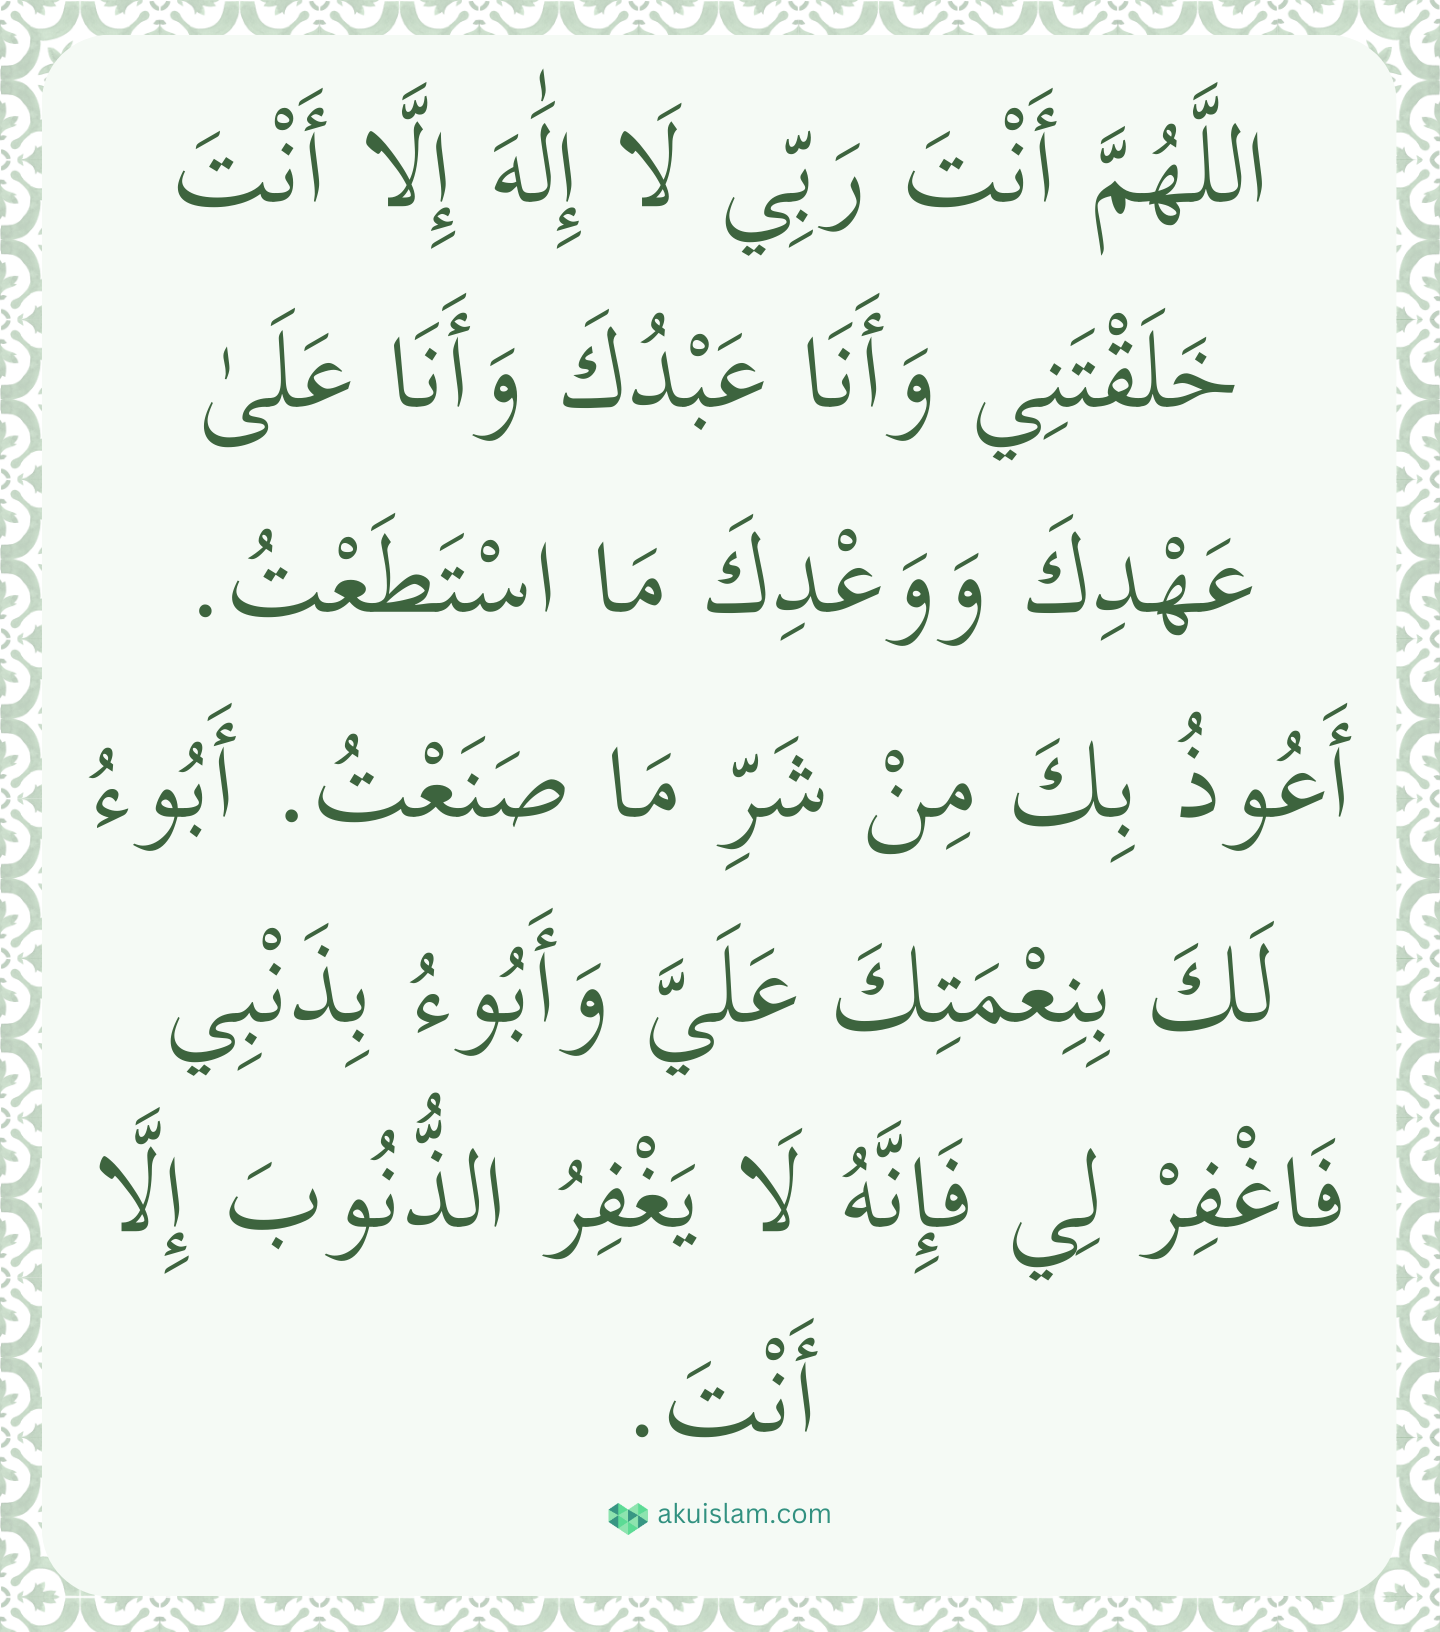 اللَّهُمَّ أَنْتَ رَبِّي لَا إِلَٰهَ إِلَّا أَنْتَ
خَلَقْتَنِي وَأَنَا عَبْدُكَ وَأَنَا عَلَىٰ
عَهْدِكَ وَوَعْدِكَ مَا اسْتَطَعْتُ.
أَعُوذُ بِكَ مِنْ شَرِّ مَا صَنَعْتُ. أَبُوءُ
لَكَ بِنِعْمَتِكَ عَلَيَّ وَأَبُوءُ بِذَنْبِي
فَاغْفِرْ لِي فَإِنَّهُ لَا يَغْفِرُ الذُّنُوبَ إِلَّا
أَنْتَ.
akuislam.com